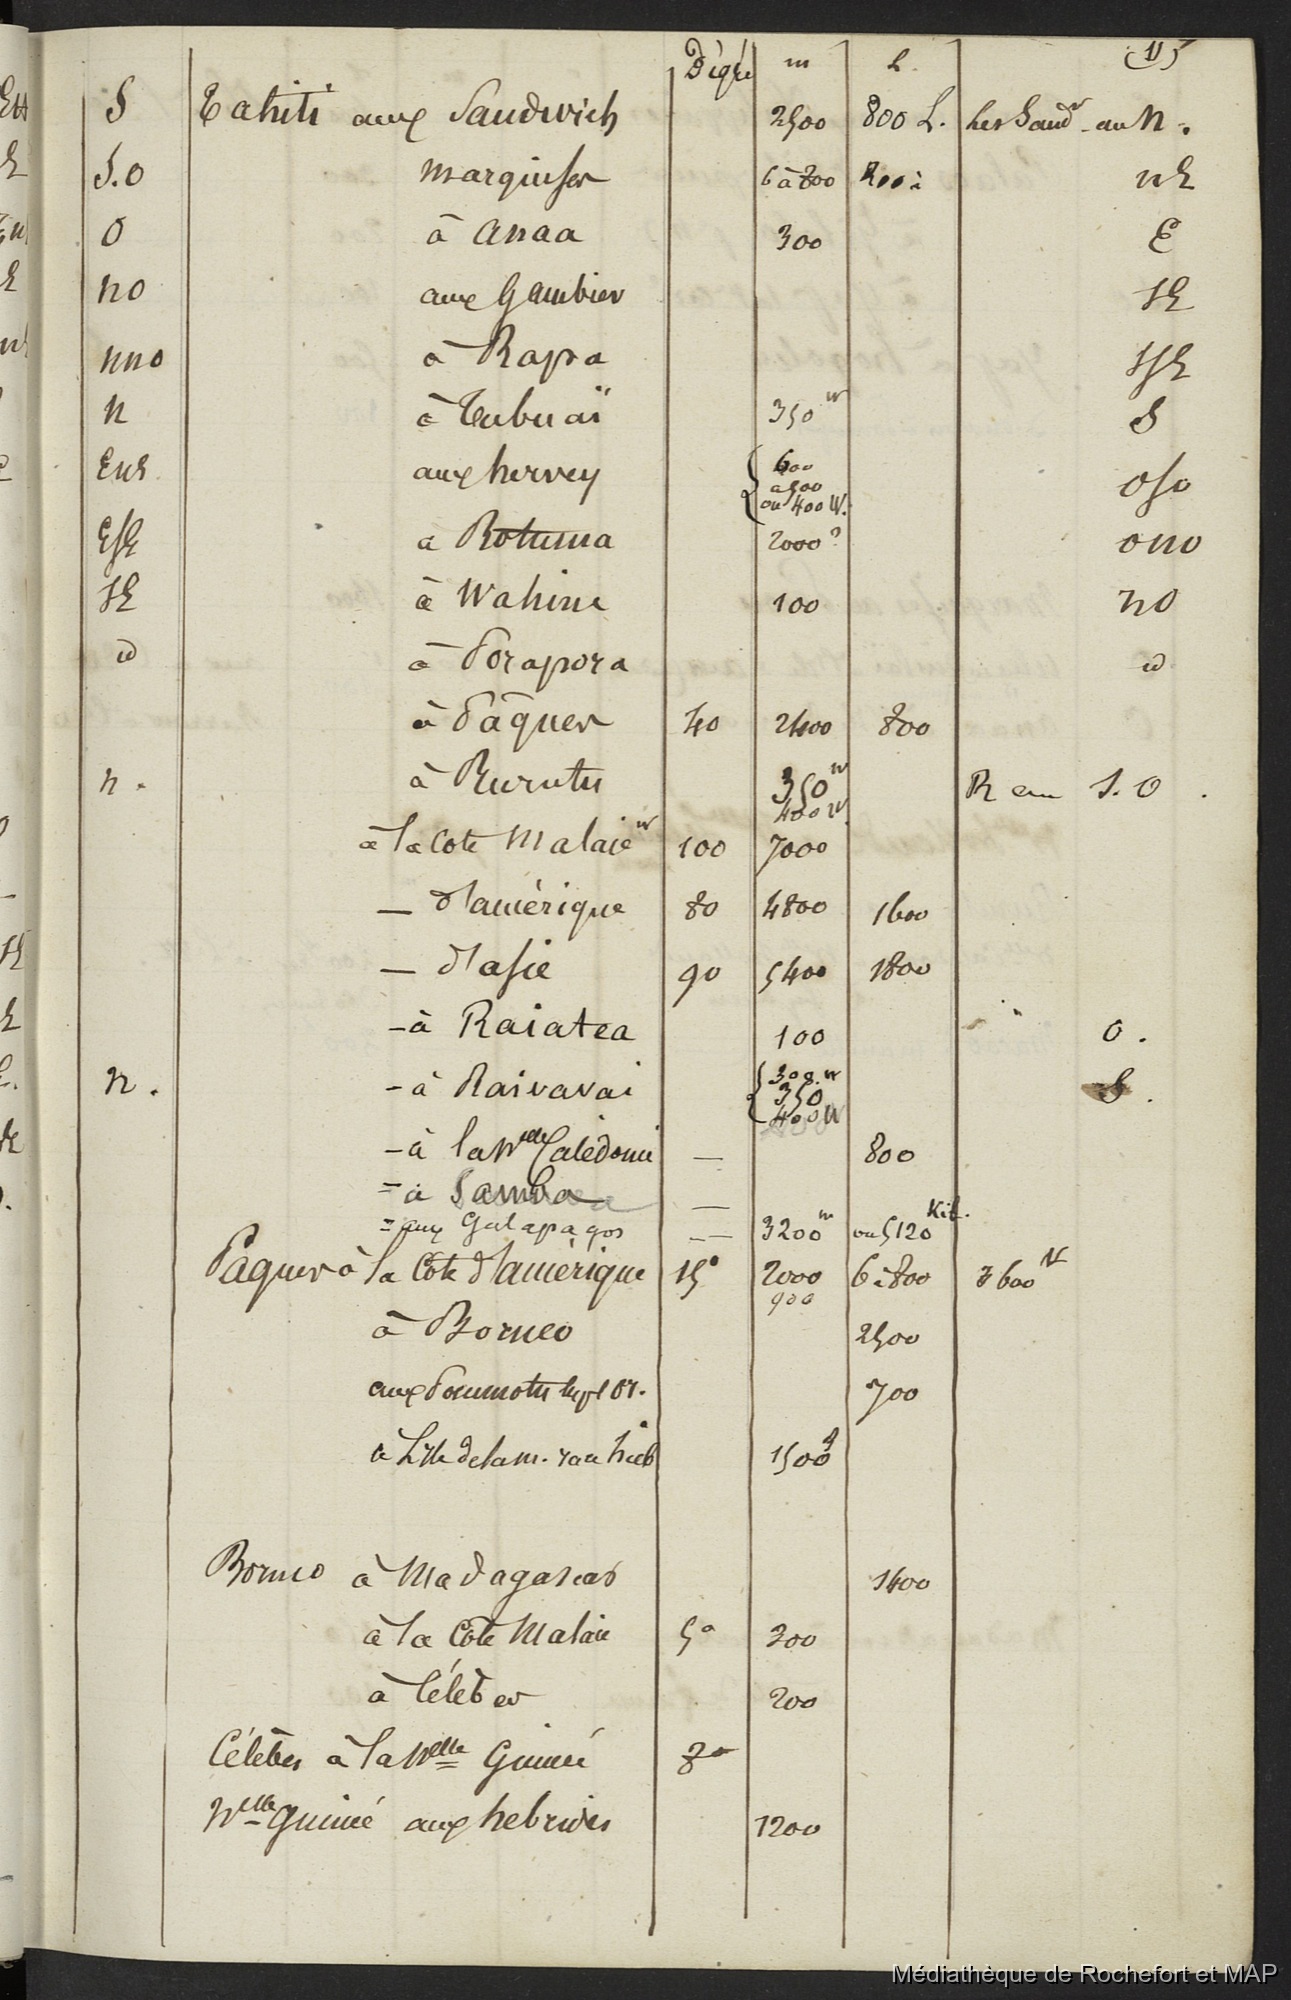 Dégré m L. (11)
S Tahiti aux Sandwich 2500 800 L. les Sandw au N.
S.O marquises 6 à 800 200 à NE
O à Anaa 300 E
NO aux Gambier SE
NNO à Rapa SSE
N à Tubuaï 350 W S
ENE aux hervey 600 OSO
à 500
ou 400 W.
ESE à Rotuma 2000? ONO
SE à Wahine 100 NO
id à Porapora id
à Pâques 40 2400 800
N. à Rurutu 350 W R au S.O.
400 W
à la Cote Malaie W 100 7000
— d'amérique 80 4800 1600
— d'asie 90 5400 1800
- à Raiatea 100 O.
N. - à Raivavai 300. W S.
350
400 W
- à la Nelle Calédonie — 800
= à Samba —
= aux Galapagos — 3200 m ou 5120 Kil.
Paques à la Côte d'amérique 15° 2000 6 à 800 3600 W
900
à Borneo 2500
aux Poumotu 700
à 1500
Borneo à Madagascar 1400
à la Côte Malaie 5° 300
à Célèbes 200
Célèbes à la Nelle Guinée 8°
Nelle Guinée aux hebrides 1200
Médiathèque de Rochefort et MAP